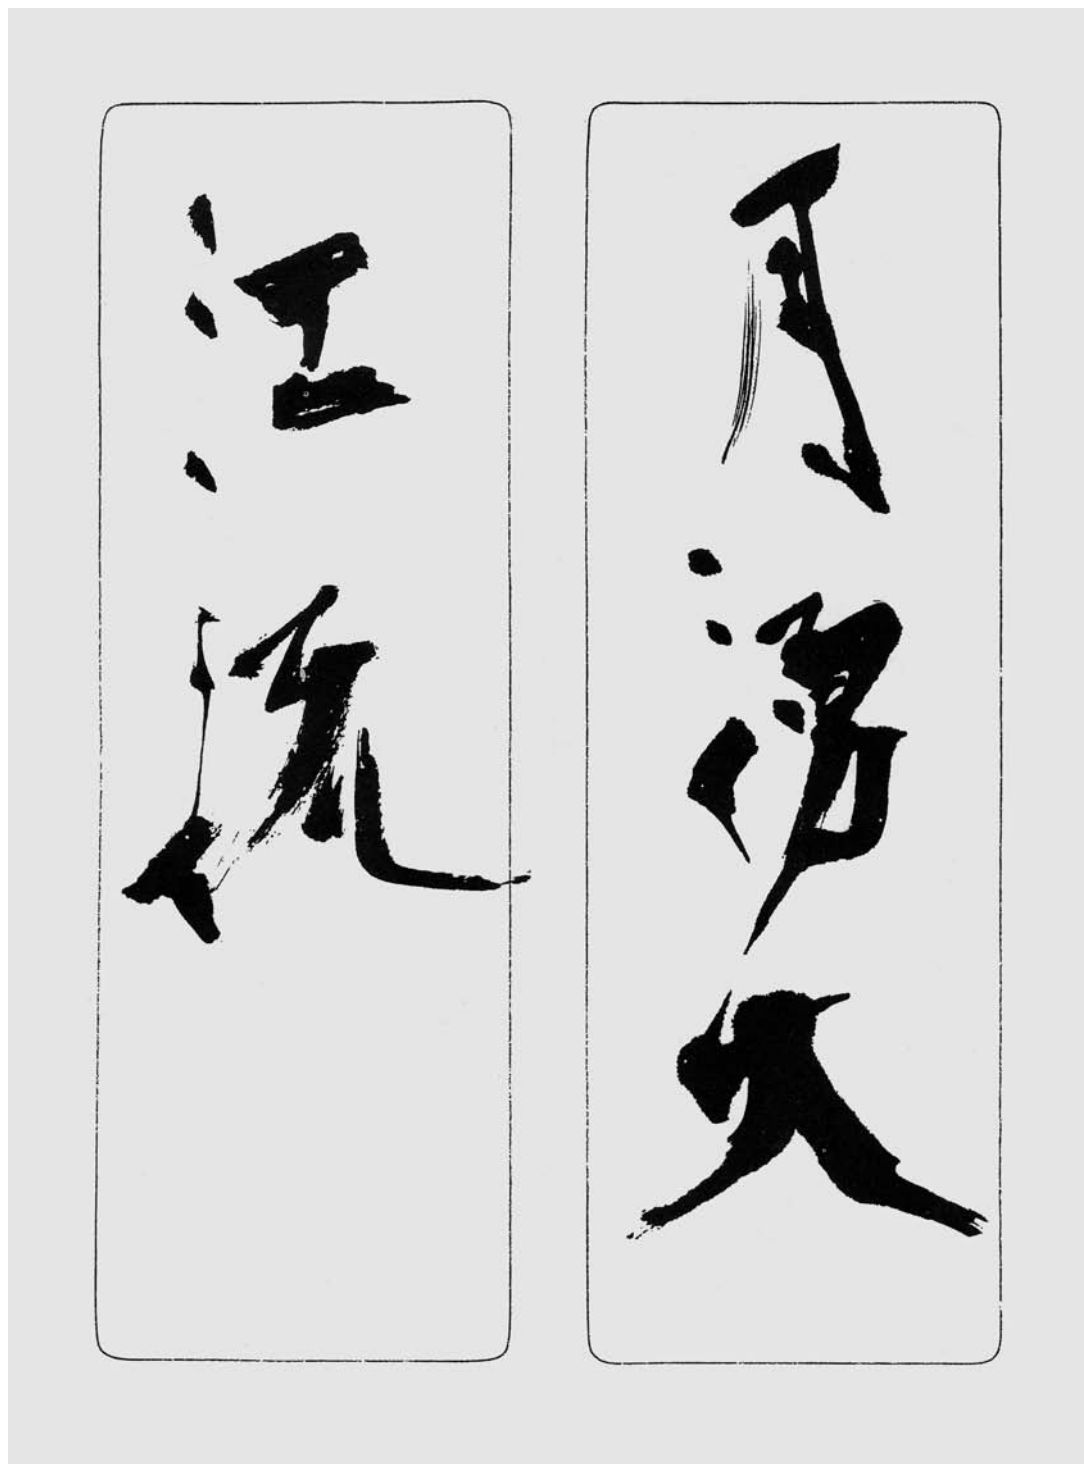 月湧大
江流